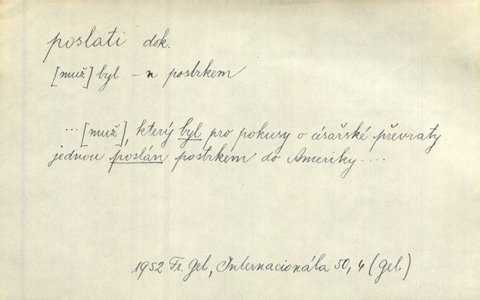 poslati dok.
[muž] byl -n postrkem
...[muž], který byl pro pokusy o císařské převraty
jednou poslán postrkem do Ameriky....
1952 Fr. Gel, Internacionála 50, 4 (gel)